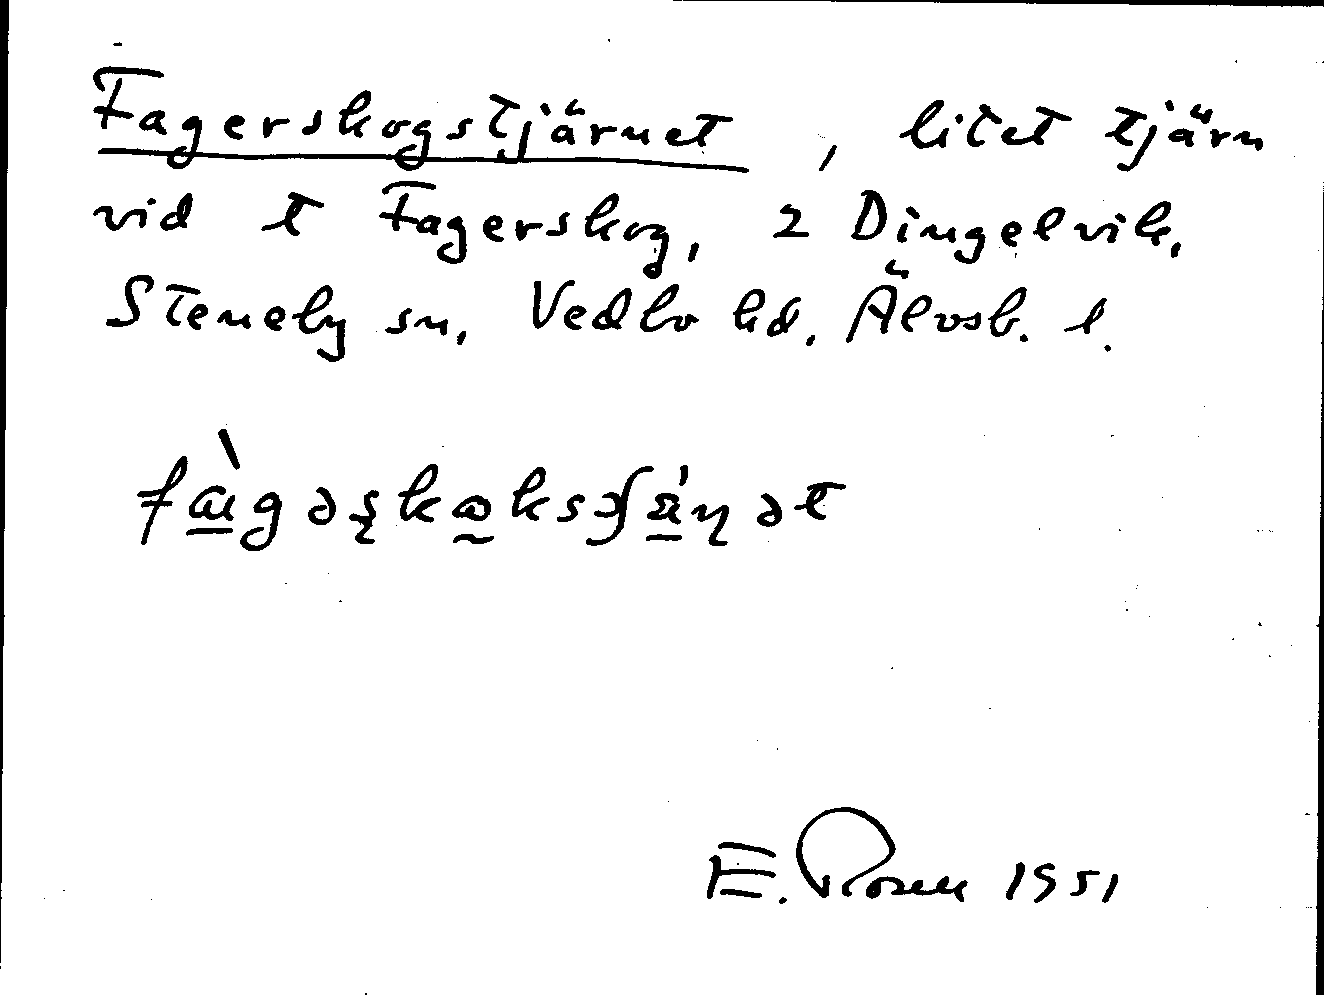 Fagerskogstjärnet, litet tjärn
vid t Fagerskog, 2 Dingelvik,
Steneby sn, Vedbo hd. Älvsb. l.
E. Rosen 1951